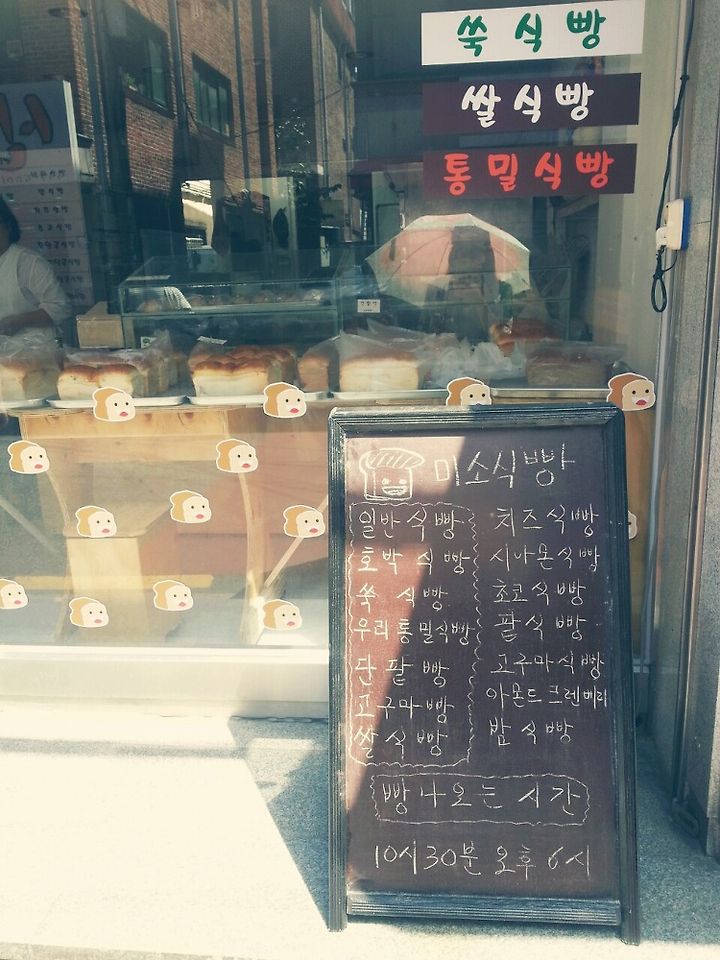 쑥식빵
쌀식빵
통밀식빵
미소식빵
일반식빵
호박식빵
쑥 식빵
우리통밀식빵
단팥빵
고구마빵
쌀식빵
치즈식빵
시나몬식빵
초코식빵
팥식빵
고구마식빵
아몬드크렌베리
밤식빵
빵나오는 시간
10시30분 오후 6시